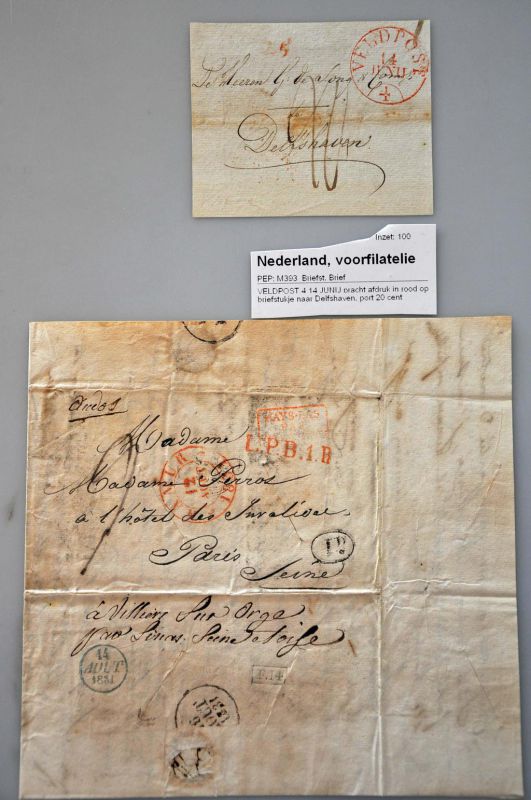 VELDPOST
14
JUNIJ
4
De Heeren G. de Jong
Delfshaven
Inzet: 100
Nederland, voorfilatelie
PEP: M393 Briefst. Brief
VELDPOST 4 14 JUNIJ pracht afdruk in rood op
briefstukje naar Delfshaven, port 20 cent
PAYS-BAS
L.P.B.1.R
Madame
Madame Perros
à l'hôtel des Invalides
Paris
Seine
à Villiers Sur Orge
par Seine et oise
14
AOUT
1831
F.14
1831